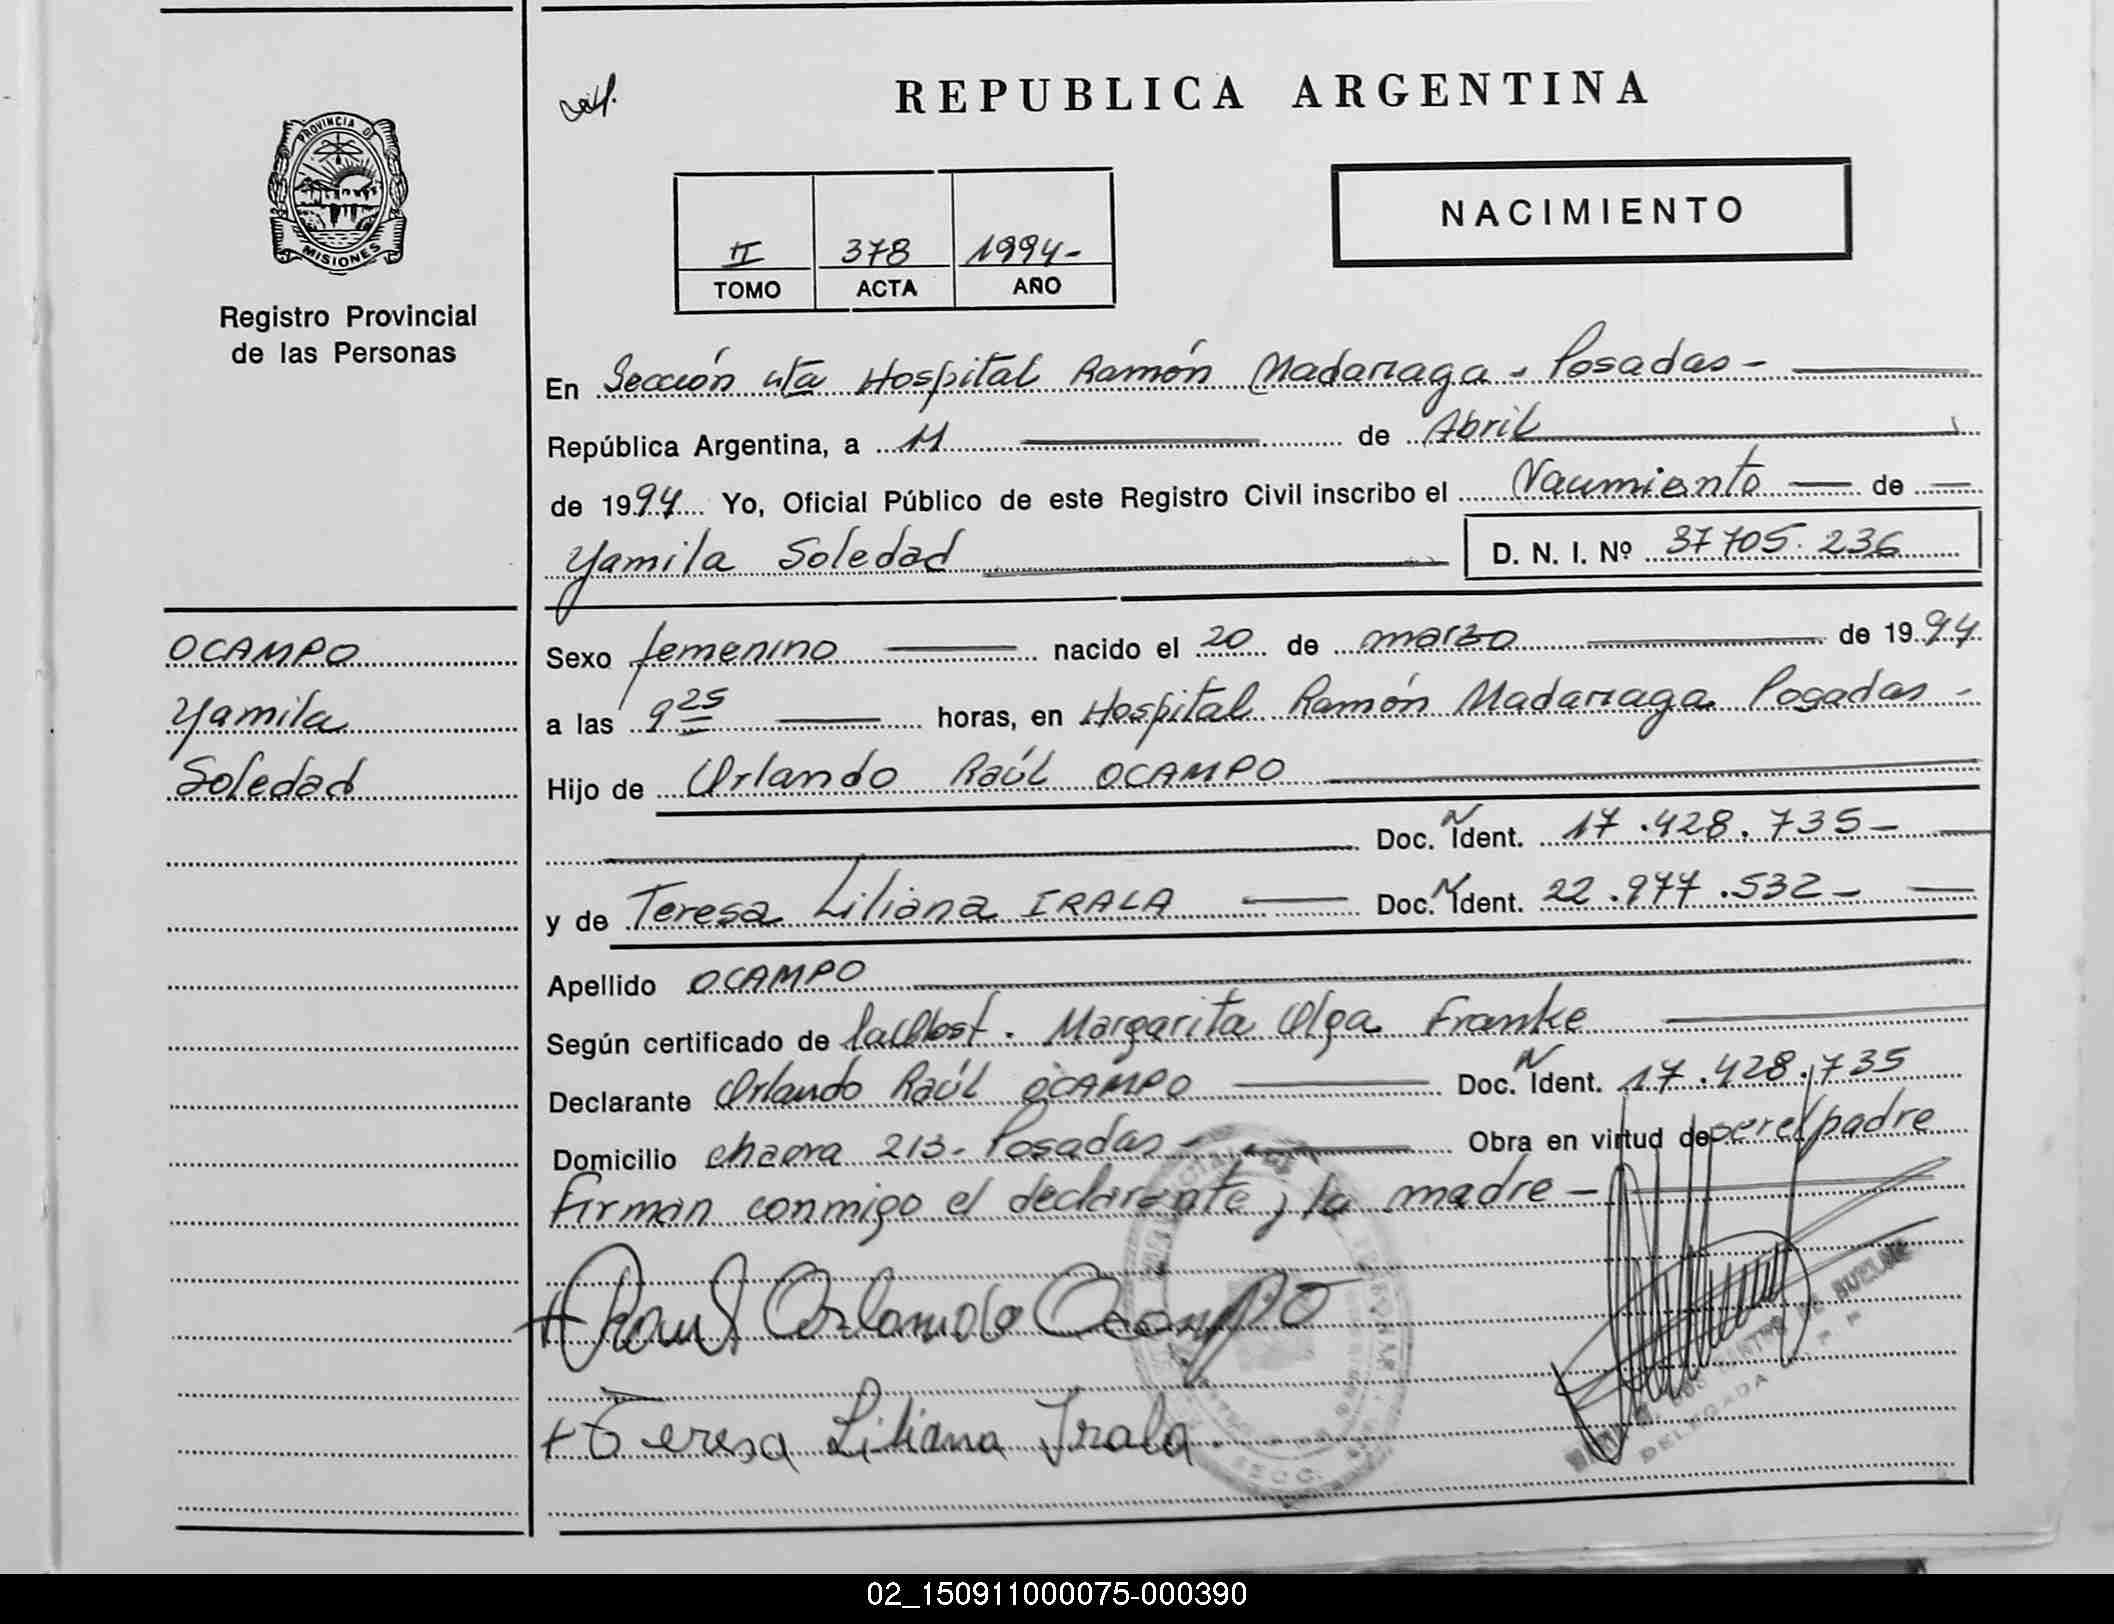 REPUBLICA ARGENTINA
PROVINCIA D
MISIONES
Registro Provincial
de las Personas
NACIMIENTO
II 378 1994-
TOMO ACTA AÑO
En Sección 4ta Hospital Ramón Madariaga - Posadas -
República Argentina, a 11 de Abril
de 1994 Yo, Oficial Público de este Registro Civil inscribo el Nacimiento de
Yamila Soledad D. N. I. Nº 37705.236
OCAMPO
Yamila
Soledad
Sexo femenino nacido el 20 de marzo de 1994
a las 9 25 horas, en Hospital Ramón Madariaga Posadas -
Hijo de Orlando Raúl OCAMPO
Doc. N Ident. 17.428.735-
y de Teresa Liliana IRALA Doc. N Ident. 22.977.532-
Apellido OCAMPO
Según certificado de Margarita Olga Franke
Declarante Orlando Raúl OCAMPO Doc. N Ident. 17.428.735
Domicilio chacra 213- Posadas - Obra en virtud de ser el padre
Firman conmigo el declarante y la madre -
Raul Orlando Ocampo
Teresa Liliana Irala
DELEGADA
SECC.
02_150911000075-000390